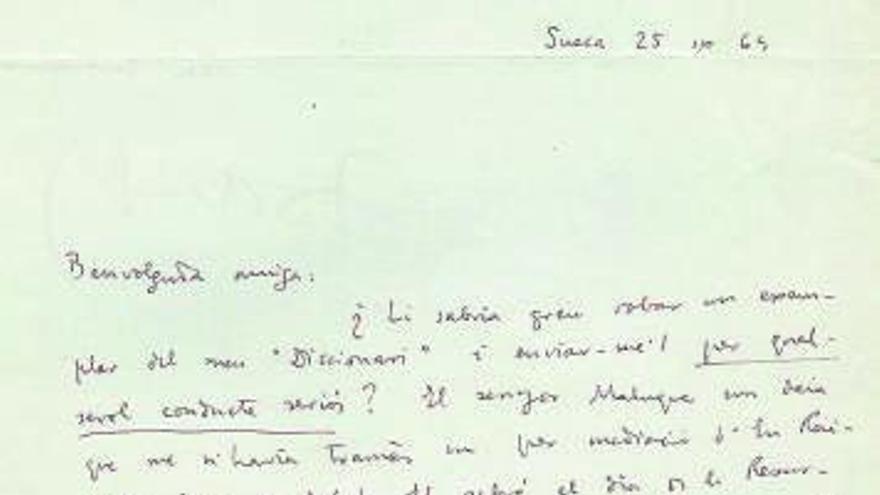 Sueca 25 64
Benvolguda amiga:
¿Li sabria greu robar un exem-
plar del meu "Diccionari" i enviar-me'l per qual-
sevol conducte seriós? El senyor Maluquer em deia
que me n'havia tramès un per mediació d'En Rai-
el dia de la Resur-